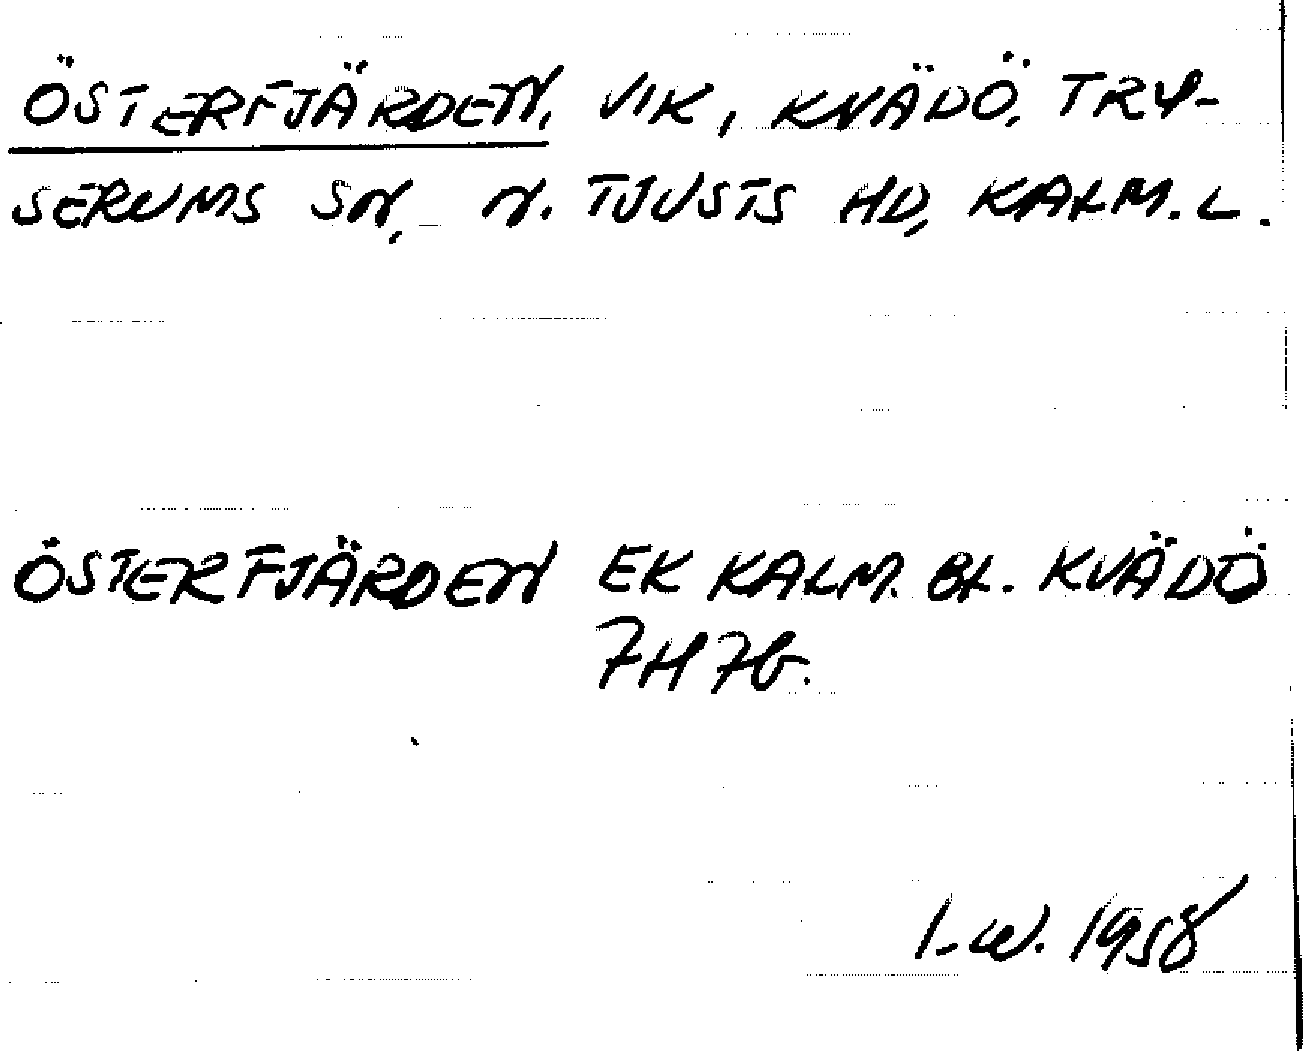 ÖSTERFJÄRDEN, VIK, KVÄDÖ, TRY-
SERUMS SN, N. TJUSTS HD, KALM. L.
ÖSTERFJÄRDEN EK KALM. BL. KVÄDÖ
7H 7b.
I.W. 1958